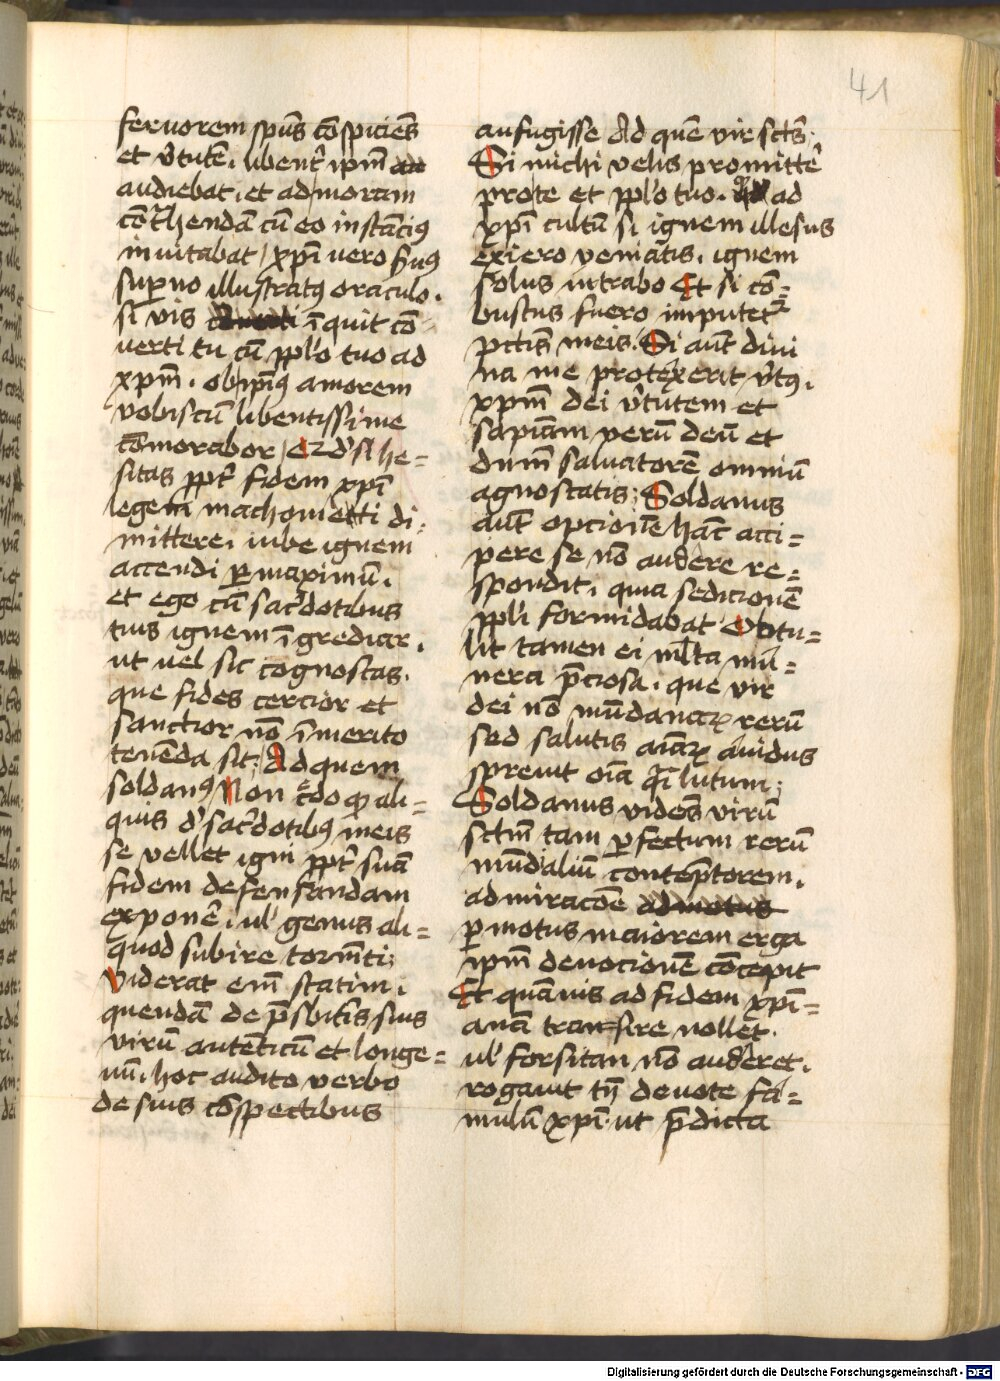 41
feruorem spūs cōspiciēs
et v̄tutē. libent̄ ipm̄
audiebat. et ad moram
cōt̾hendā cū eo instāci9
inuitabat / xpī uero ẜu9
suꝑno illustrat9 oraculo.
si vis īquit cō
uerti tu cū pplo tuo ad
xpm̄. ob ip̄i9 amorem
vobiscū libentissime
cōmorabor / Qd si he=
sitas ppt̄ fidem xpī
legem machometti di=
mittere. iube ignem
accendi ꝑmaximū.
et ego cū sac̄dotibus
tuis ignem īgrediar.
ut uel sic cognoscas.
que fides cercior et
sanctior nō īmerito
tenēda sit; Ad quem
soldan9 Non c̄do ꝙ ali=
quis d' sac̄dotib9 meis
se vellet igni ppt̄ suā
fidem defensandam
exponē. ul' genus ali=
quod subire torm̄ti;
Viderat em̄ statim.
quendā de p̄sbit̄is suis
virū autenticū et longe=
uū. hoc audito verbo
de suis cōspectibus
aufugisse Ad quē vir sctūs.
Si michi velis promittē
pro te et pplo tuo. ꝙ ad
xpī cultū si ignem illesus
exiero veniatis. ignem
solus intrabo Et si cō=
bustus fuero imputet̾
pctīs meis. Si aut̄ diui
na me protexerit v̄t9.
xpm̄ dei v̄tutem et
sapiam verū deū et
dnm̄ saluatorē omniū
agnoscatis; Soldanus
aut̄ opcionē hāc acci=
pere se nō audere re=
spondit. quia sedicionē
ppli formidabat Obtu=
lit tamen ei ml̄ta mu=
nera p̄ciosa. que vir
dei nō mūdanaꝝ rerū
sed salutis aīaꝝ auidus
spreuit oīa q̄i lutum;
Soldanus vidēs virū
sctm̄ tam ꝑfectum rerū
mūdialiū contēptorem.
admiracōe ad motus
ꝑmotus maiorem erga
ipm̄ deuocionē cōcepit
Et quāuis ad fidem xpī=
anā transire nollet.
ul' forsitan nō auderet.
rogauit tn̄ deuote fa=
mulū xpī. ut p̄dicta
Digitalisierung gefördert durch die Deutsche Forschungsgemeinschaft - DFG